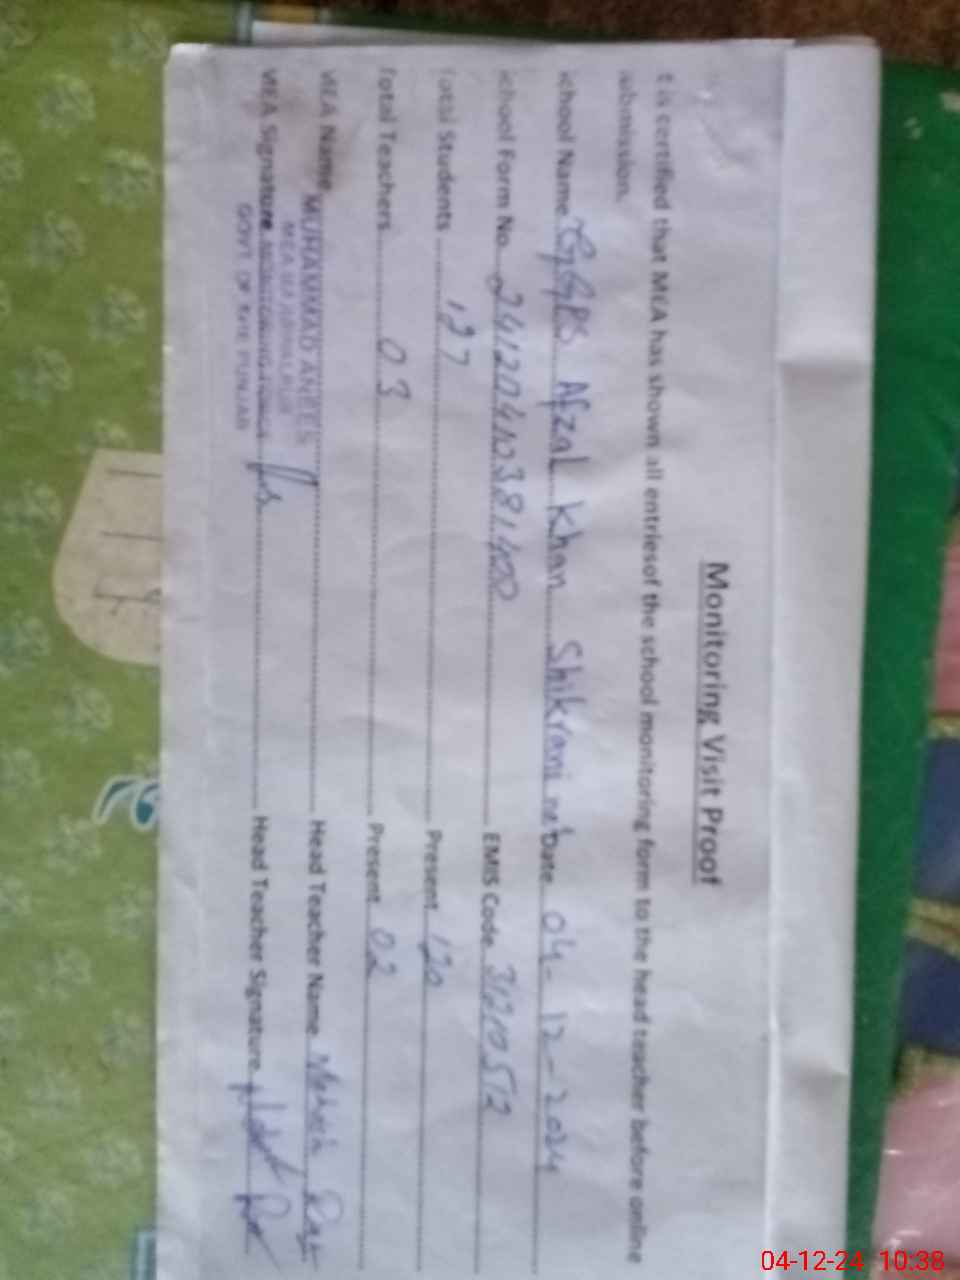 Monitoring Visit Proof
t is certified that MEA has shown all entriesof the school monitoring form to the head teacher before online
ubmission.
chool Name GGPS Afzal Khan Shikrani Date 04-12-2024
chool Form No. 24120410381400 EMIS Code 31210512
Total Students 127 Present 120
Total Teachers 03 Present 02
MEA Name MUHAMMAD ANEES Head Teacher Name
MEA Signature Head Teacher Signature
GOVT. OF THE PUNJAB
04-12-24 10:38